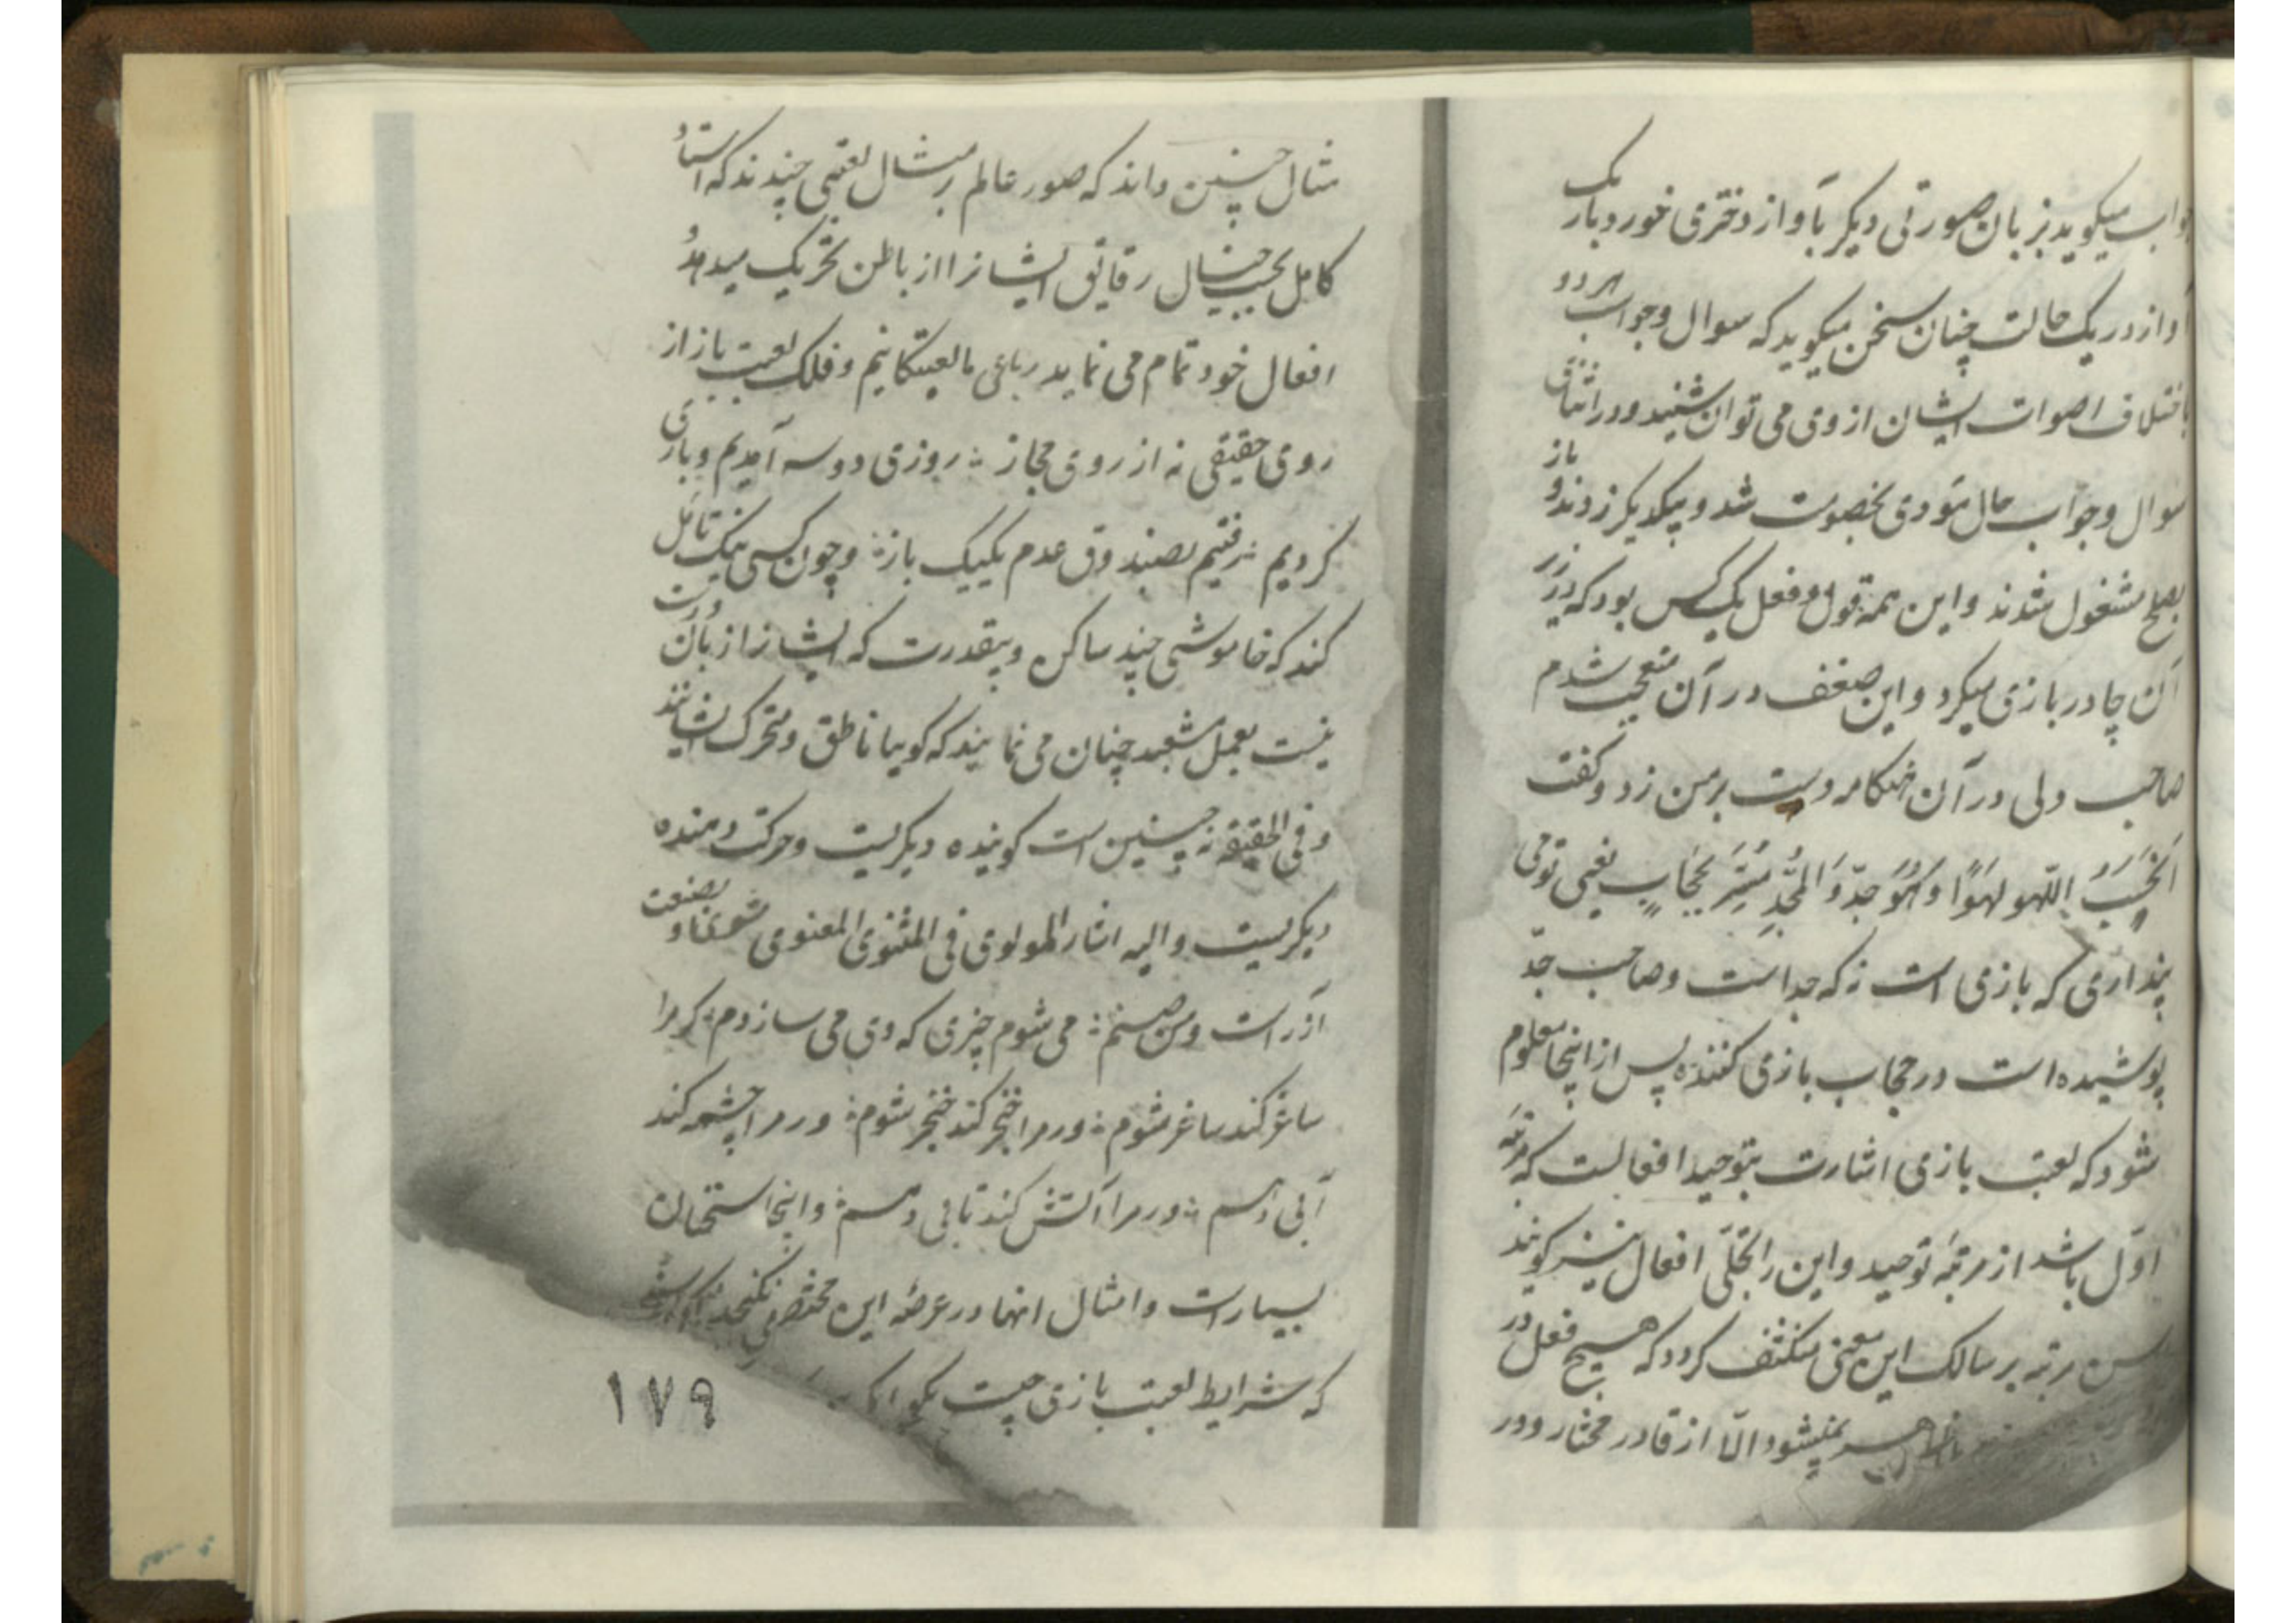 جواب میگوید بزبان صورتی دیگر بآواز دختری خورد باریک
آواز در یک حالت چنان سخن میگوید که سوال و جواب هر دو
باختلاف اصوات ایشان از وی می توان شنید و در اثنای
سوال و جواب حال مودی بخصومت شد و بیکدیگر زدند و باز
بصلح مشغول شدند و این همه قول و فعل یک کس بود که در زیر
آن چادر بازی میکرد و این ضعف در آن متعجب شدم
صاحب ولی در آن هنگام دست بر من زد و گفت
اتحسب اللهو لهوا و هو جد و المجد مستتر بحجاب یعنی تو می
پنداری که بازی است نه که جد است و صاحب جد
پوشیده است در حجاب بازی کننده پس از اینجا معلوم
شود که لعبت بازی اشارت بتوحید افعالست که مرتبه
اول باشد از مرتبه توحید و این را تجلی افعال نیز گویند
مرتبه بر سالک این معنی منکشف گردد که هیچ فعل در
ظاهر نمیشود الا از قادر مختار و در
مثال چنین داند که صور عالم بر مثال لعبتی چندند که استاد
کامل بحسب خیال رقایق ایشانرا از باطن تحریک میدهد
افعال خود تمام می نماید رباعی ما لعبتکانیم و فلک لعبت باز از
روی حقیقی نه از روی مجاز ؛ روزی دو سه آمدیم و بازی
کردیم ؛ رفتیم بصندوق عدم یکیک باز ؛ و چون کسی نیک تامل
کند که خاموشی چند ساکن و بیقدرت که ایشانرا زبان و قدرت
نیست بعمل مشعبد چنان می نمایند که گوییا ناطق و متحرک ایشانند
و فی الحقیقه نه چنین است گوینده دیگریست و حرکت دهنده
دیگریست و الیه اشار المولوی فی المثنوی المعنوی شعر بصنعت
آزر است و من صنم ؛ می شوم چیزی که وی می سازدم ؛ گر مرا
ساغر کند ساغر شوم ؛ ور مرا خنجر کند خنجر شوم ؛ ور مرا چشمه کند
آبی دهم ؛ ور مرا آتش کند تابی دهم ؛ و اینجا سخنان
بسیار است و امثال انها در عرصه این مختصر نگنجد اگر پرسند
که شرایط لعبت بازی چیست بگو
۱۷۹